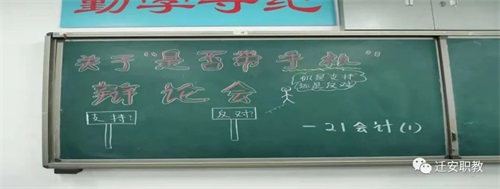 勤学守纪
关于“是否带手机”
辩论会
支持?
反对?
我是支持
还是反对
—21会计(1)
迁安职教